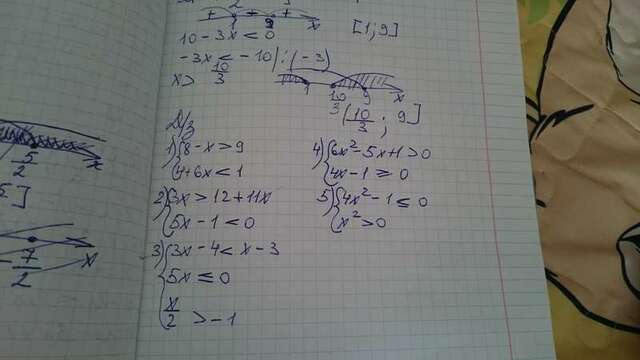 + 1 - 9 + x
10 - 3x < 0 [1; 9]
-3x < -10 | : (-3)
x > 10/3
10/3 9 x
(10/3 ; 9]
Д/з
1) { 8 - x > 9
4 + 6x < 1
2) { 3x > 12 + 11x
5x - 1 < 0
3) { 3x - 4 < x - 3
5x ≤ 0
x/2 > -1
4) { 6x² - 5x + 1 > 0
4x - 1 ≥ 0
5) { 4x² - 1 ≤ 0
x² > 0
5/2 x
5]
-7/2 x